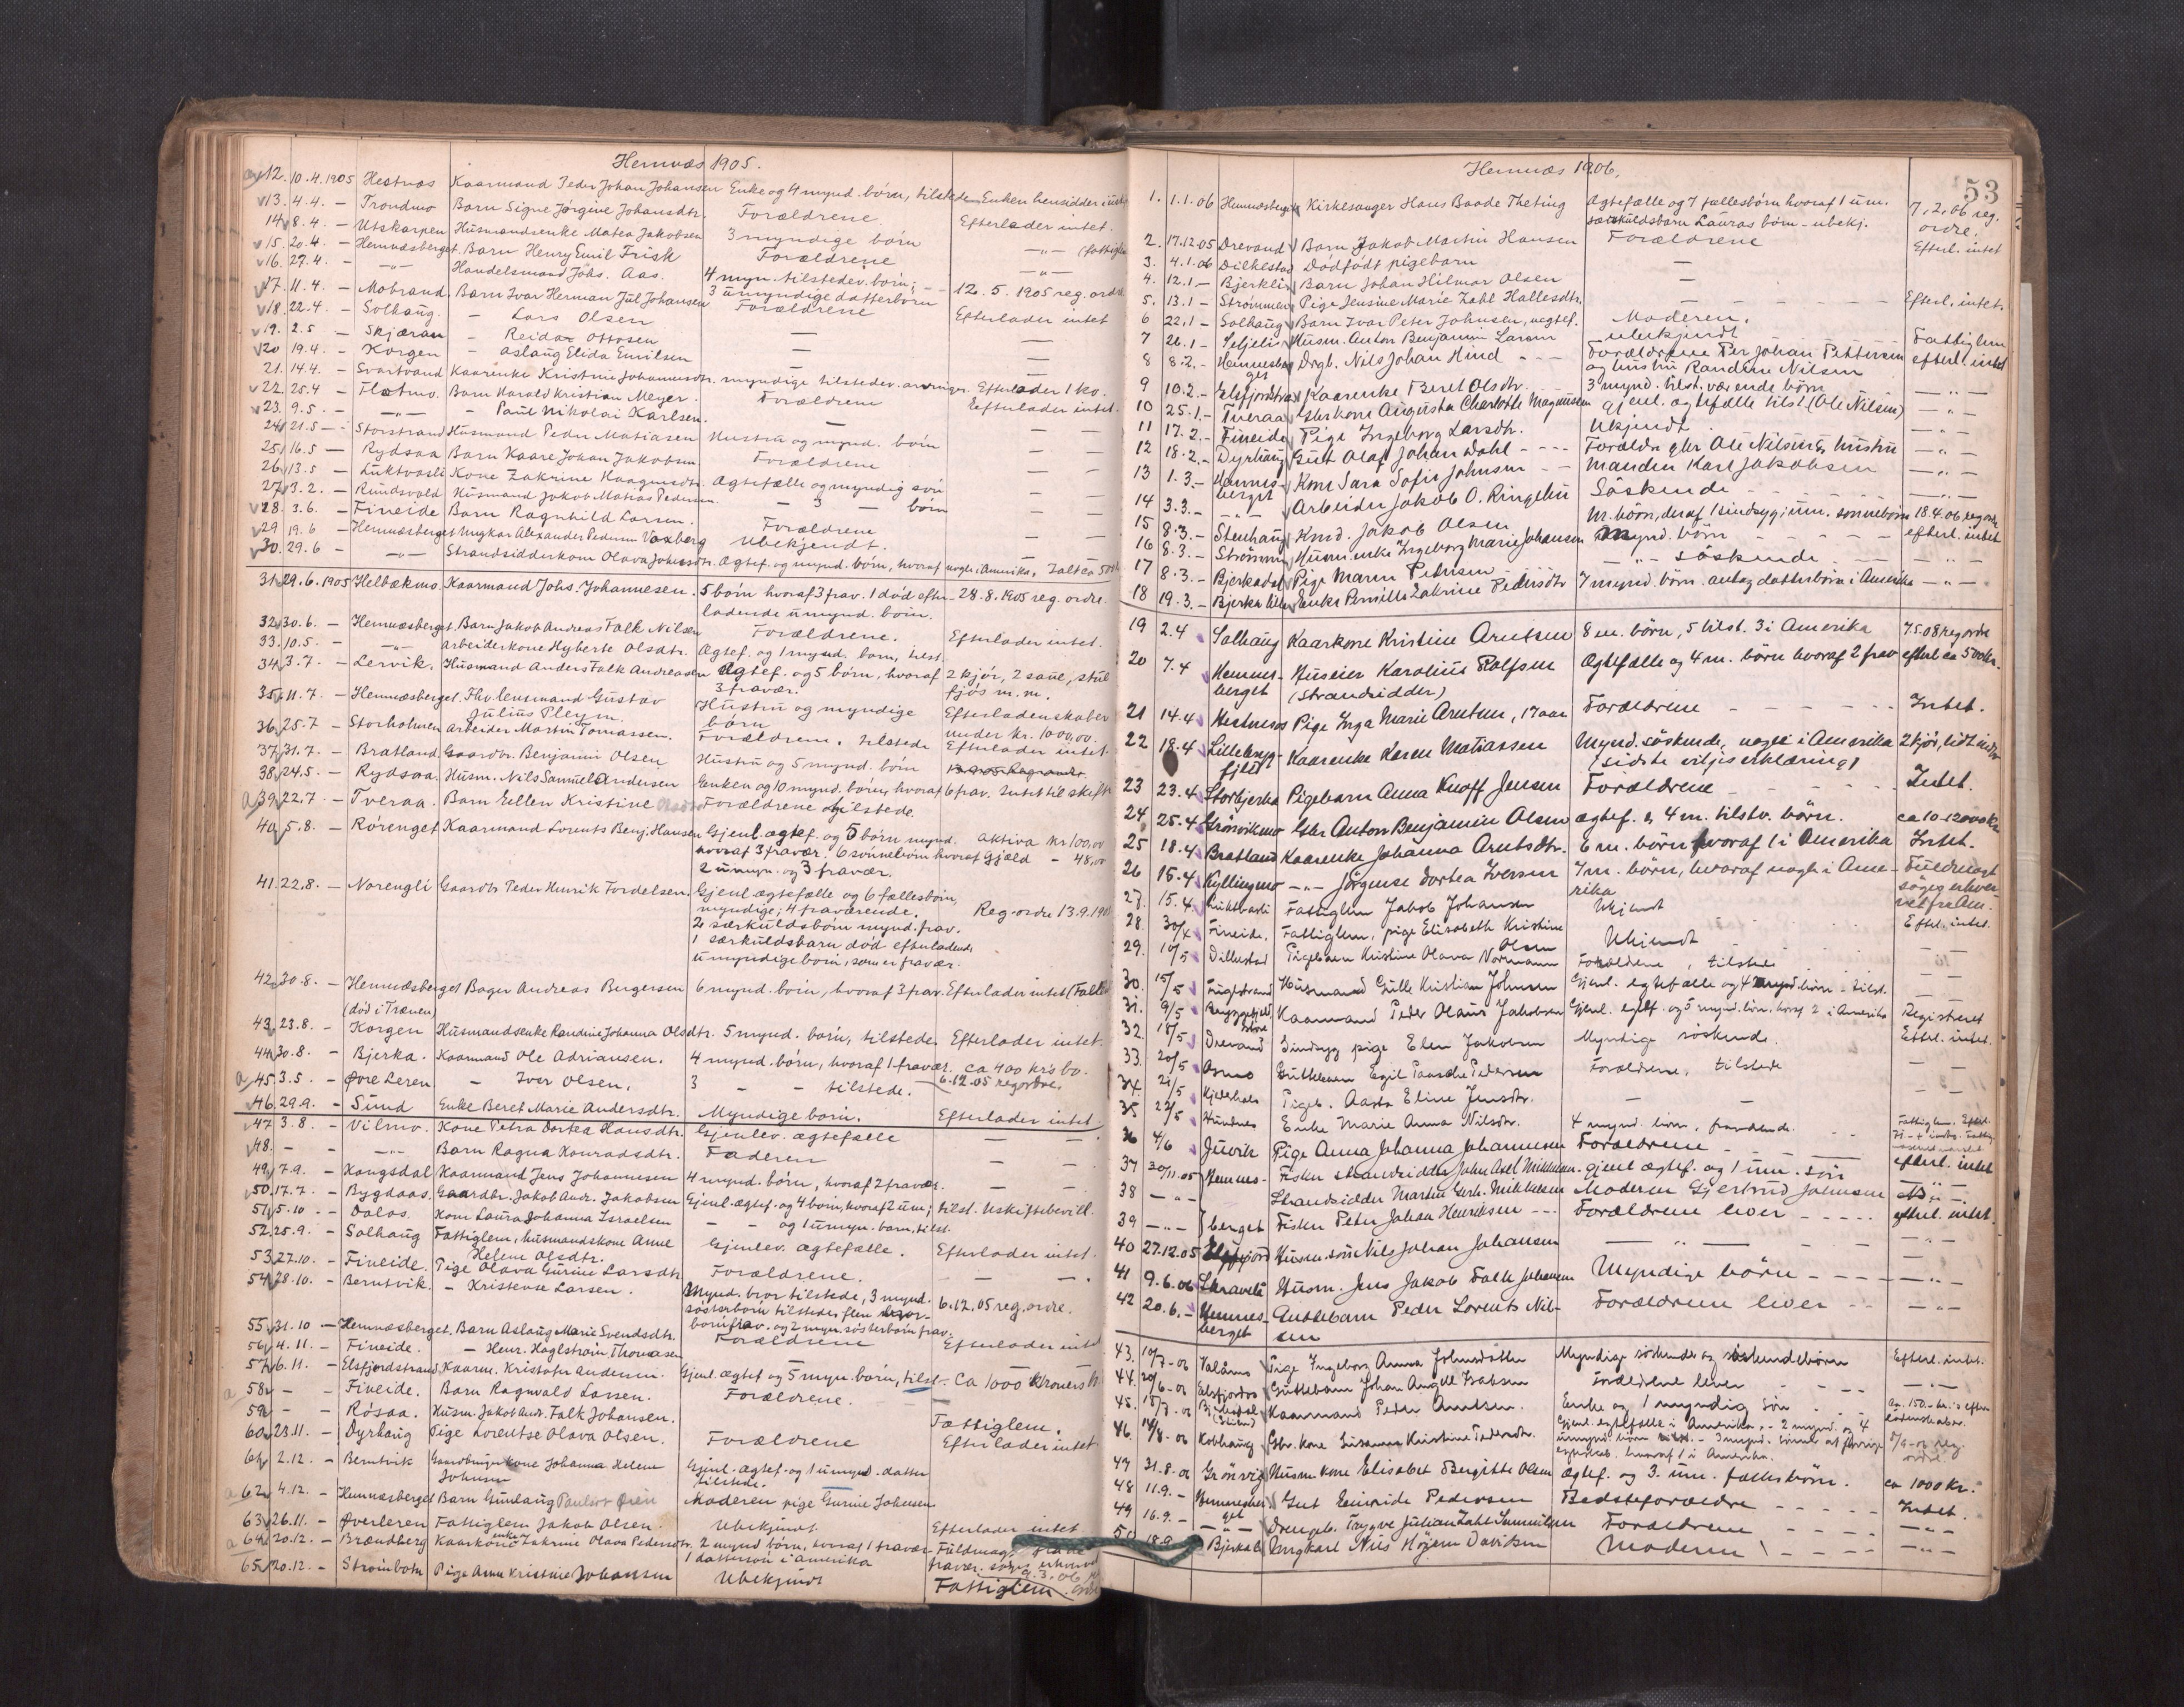 Hemnæs 1905.
12. 10.4.1905 Hestnæs Kaarmand Peder Johan Johansen Enke og 4 mynd. börn, tilstede Enken hensidder i uskif
13. 4.4. — Trondmo Barn Signe Jörgine Johansdtr. Forældrene
14. 8.4. — Utskarpen Husmandsenke Matea Jakobsen 3 myndige börn Efterlader intet.
15. 20.4. — Hemnæsberget. Barn Henry Emil Frisk Forældrene —"— (fattig
16. 27.4. — —"— Handelsmand Johs. Aas. 4 myn. tilstedev. börn; —"—
3 umyndige datterbörn 12.5.1905 reg. ord
17. 11.4. — Mobrand Barn Ivar Herman Jul Johansen Forældrene
18. 22.4. — Solhaug. — Lars Olsen — Efterlader intet
19. 2.5 — Skjæran — Reidar Ottosen — —
20 19.4. — Korgen — Aslaug Elida Emilsen — —
21. 14.4. — Svartvand Kaarenke Kristine Johannesdtr. myndige tilstedev. arvinger. Efterlader 1 ko.
22. 25.4 — Flætmo. Barn Harald Kristian Meyer. Forældrene Efterlader intet.
23. 9.5. — —"— — Paul Nikolai Karlsen. —
24. 21.5 — Storstrand Husmand Peder Matiasen Hustru og mynd. börn — —
25. 16.5 — Rydsaa Barn Kaare Johan Jakobsen Forældrene — —
26. 13.5 — Luktvasli Kone Zakrine Kaagensdtr. Ægtefælle og myndig sön — —
27. 13.2. — Rundsvold Husmand Jakob Matias Pedersen — 3 — börn — —
28. 3.6. — Fineide Barn Ragnhild Larsen. Forældrene
29 19.6 — Hemnæsberget Ungkar Alexander Pedersen Vaxberg Ubekjendt. — —
30. 29.6 — —"— Strandsidderkone Olava Johnsdtr. Ægtef. og mynd. börn, hvoraf nogle i Amerika.
31. 29.6.1905 Helbækmo. Kaarmand Johs. Johannesen. 5 börn hvoraf 3 frav. 1 död efter- 28.8.1905 reg. ordre.
ladende umynd. börn.
32. 30.6. — Hemnæsberget. Barn Jakob Andreas Falk Nilsen Forældrene. Efterlader intet.
33. 10.5. — —"— Arbeiderkone Hyberte Olsdtr. Ægtef. og 1 mynd. barn, tilst.
34. 3.7. — Lervik. Husmand Anders Falk Andreasen Ægtef. og 5 börn, hvoraf 2 kjör, 2 saue, stue
3 fravær. fjös m.m.
35. 11.7. — Hemnæsberget. Fhv. lensmand Gustav Hustru og myndige Efterladenskaber
Julius Pleym. börn under kr. 1000,00.
36. 25.7 — Storholmen Arbeider Martin Tomassen. Forældrene. tilstede Efterlader intet.
37. 31.7. — Bratland. Gaardbr. Benjamin Olsen Hustru og 5 mynd. börn
38. 24.5. — Rydsaa. Husm. Nils Samuel Andersen Enken og 10 mynd. börn, hvoraf 6 frav. Intet til skifte
39. 22.7. — Tveraa. Barn Ellen Kristine Forældrene tilstede.
40. 5.8. — Rörenget Kaarmand Lorents Benj. Hansen Gjenl. ægtef. og 5 börn mynd. Aktiva kr 100,00
hvoraf 3 fravær. 6 sönnebörn hvoraf Gjæld — 48,00
2 umyn. og 3 fravær.
41. 22.8. — Norengli Gaardbr. Peder Henrik Fordelsen. Gjenl. ægtefælle og 6 fællesbörn,
myndige; 4 fraværende. Reg. ordre 13.9.19
2 særkuldsbörn mynd. frav.
1 særkuldsbarn död efterladende
umyndige börn, som er fravær.
42. 30.8. — Hemnæsberget Bager Andreas Bergersen 6 mynd. börn, hvoraf 3 frav. Efterlader intet
(död i Trænen)
43. 23.8. — Korgen Husmandsenke Randine Johanna Olsdtr. 5 mynd. börn, tilstede. Efterlader intet.
44. 30.8. — Bjerka. Kaarmand Ole Adriansen. 4 mynd. börn, hvoraf 1 fravær. Ca 400 kr's bo.
45. 3.5. — Övre Leren — Iver Olsen. 3 — — tilstede. 6.12.05 reg. ordre.
46. 29.9. — Sund Enke Beret Marie Andersdtr. Myndige börn. Efterlader intet
47. 3.8. — Vilmo. Kone Petra Dortea Hansdtr. Gjenlev. ægtefælle — —
48. — — —"— Barn Ragna Konradsdtr. Faderen
49. 7.9. — Kangsdal Kaarmand Jens Johannesen 4 mynd. börn, hvoraf 2 fravær. — —
50. 17.7. — Bygdaas. Gaardbr. Jakob Andr. Jakobsen Gjenl. ægtef. og 4 börn, hvoraf 2 um; tilst. Uskiftebevill.
51. 5.10 — Dalas. Kone Laura Johanna Israelsen — — og 1 umyn. barn, tilst.
52. 25.9. — Solhaug Fattiglem, husmandskone Anne Gjenlev. ægtefælle. Efterlader intet.
Helene Olsdtr.
53. 27.10. — Fineide. Pige Olava Gurine Larsdtr Forældrene. — —
54. 28.10. — Berntvik. — Kristense Larsen. Mynd. bror tilstede, 3 mynd. 6.12.05 reg. ordre.
sösterbörn tilstede, flere
börn frav. og 2 myn. sösterbörn frav.
55. 31.10 — Hemnæsberget. Barn Aslaug Marie Svendsdtr. Forældrene Efterlader intet
56. 4.11. — Fineide. — Henr. Haglstrøm Thomasen
57. 6.11. — Elsfjordstrand Kaarm. Kristofer Andersen. Gjenl. ægtef. og 5 myn. börn, tilst. Ca 1000 Kroners
58. — — Fineide. Barn Ragnvald Larsen. Forældrene.
59. — — Rösaa. Husm. Jakob Andr. Falk Johansen. Fattiglem.
60. 23.11. — Dyrhaug Pige Lorentse Olava Olsen. Forældrene Efterlader intet
61. 2.12. — Berntvik Gaardbrugerkone Johanna Helene Gjenl. ægtef. og 1 umynd. datter
Johnsen tilstede.
62. 4.12. — Hemnæsberget Barn Gunlaug Moderen pige Gurine Johansen
63. 26.11. — Överleren Fattiglem Jakob Olsen. Ubekjendt. Efterlader intet
64. 20.12. — Brændberg Kaarkone enke Zakrine Olava Pedersdtr. 2 mynd börn, hvoraf 1 fravær. Fuldmagt
1 dattersön i Amerika fravær. söges erhvervet
65. 20.12. — Strömbotn Pige Anne Kristine Johansen Ubekjendt Fattiglem.
Hemnæs 1906.
53
1. 1.1.06 Hemnæsberget Kirkesanger Hans Baade Theting Ægtefælle og 7 fællesbörn hvoraf 1 um. 7.2.06 reg.
særkuldsbarn Lauras börn - ubekj. ordre.
2. 17.12.05 Drevand Barn Jakob Martin Hansen Forældrene Efterl. intet
3. 4.1.06 Dilkestad Dödfödt pigebarn —
4. 12.1 — Bjerkli Barn Johan Hilmar Olsen —
5. 13.1 — Strömmen Pige Jensine Marie Zahl Hallesdtr. — Efterl. intet.
6 22.1 — Solhaug Barn Ivar Peter Johnsen, uegtef. Moderen.
7 26.1 — Seljeli Husm. Anton Benjamin Larsen ubekjendt Fattiglem
8 8.2. — Hemnesber Drgb. Nils Johan Hind Forældrene Per Johan Pettersen efterl. intet
get og hustru Randine Nilsen
9 10.2. — Elsfjordstrand Kaarenke Beret Olsdtr. 3 mynd. tilst. værende börn —"—
10 25.1. — Tveraa Gbrkone Augusta Charlotte Magnusen gjenl. ægtefælle tilst (Ole Nilsen) —"—
11 17.2. — Fineide Pige Ingeborg Larsdtr. Ukjendt —"—
12 18.2. — Dyrhaug Gut Olaf Johan Dahl Forældr. gbr Ole Nilsen & hustru —"—
13 1.3. — Hemnes- Kone Sara Sofie Johnsen Manden Karl Jakobsen —"—
berget
14 3.3. — —"— Arbeider Jakob O. Ringelin Söskende —"—
15 8.3. — Stenhaug Kmd. Jakob Olsen M. börn, deraf 1 sindsyg; um. sönnebörn 18.4.06 reg ordr
16 8.3. — Strömmen Husm. enke Ingeborg Marie Johansen Mynd. börn efterl. intet
17 8.3. — Bjerkadal Pige Maren Petersen —"— söskende
18 19.3. — Bjerka lille Enke Pernille Zakrine Pedersdtr 7 mynd. börn. antag datterbörn i Amerika —"—
19 2.4 Solhaug Kaarkone Kristine Arntsen 8 m. börn, 5 tilst. 3 i Amerika 7.5.08 reg ordre
20 7.4 Hemnes- Huseier Karolius Rolfsen Ægtefælle og 4 m. börn hvoraf 2 frav efterl ca 500 kr.
berget (Strandsidder)
21 14.4 Hestnesos Pige Inga Marie Arntsen, 17 aar Forældrene Intet.
22 18.4 Kaarenke Karen Matiassen Mynd. söskende, nogle i Amerika 2 kjör, lidt
(sidste viljes erklæring)
23 23.4 Storbjerka Pigebarn Anna Knoff Jensen Forældrene Intet.
24 25.4 Grönvikmo Gbr Anton Benjamin Olsen ægtef. & 4 m. tilstv. börn. ca 10-1200 kr
25 18.4 Bratland Kaarenke Johanna Arntsdtr. 6 m. börn hvoraf 1 i Amerika Intet.
26 15.4 Kyllingmo —"— Jörgense Dortea Iversen 7 m. börn, hvoraf nogle i Ame- Fuldmagt
rika söges erhver
vet fra Am.
27. 15.4 Luktvasli Fattiglem Jakob Johansen Ukjendt
28. 30/4 Fineide. Fattiglem, pige Elisabeth Kristine Ukjendt Efterl. intet.
Olsen
29. 10/5 Dilkestad Pigebarn Kristine Olava Normann Forældrene, tilstede —
30. 15/5 Husmand Gulle Kristian Johnsen Gjenl. egtefælle og 4 mynd. börn - tilst.
31. 9/5 Kaarmand Peder Olaus Jakobsen Gjenl. egtef. og 5 mynd. börn, hvoraf 2 i Amerika Registreret
32. 18/5 Drevand Sindsyg pige Elen Jakobsen Myndige söskende. Efterl. intet.
33. 20/5 Osmo Guttebarn Egil Paasche Pedersen Forældrene, tilstede — —
34. 21/5 Pigeb. Aasta Eline Jensdtr. — — — —
35 22/5 Enke Marie Anna Nilsdtr. 4 mynd. börn, fraværende. Fattiglem. Efterl.
36 4/6 Juvik Pige Anna Johanna Johannesen Forældrene efterl. intet
37 20/11.05 Hemnes- Fisker strandsidder John Axel Mikkelsen gjenl ægtef. og 1 um. sön
38 —"— Strandsidder Martin Gerh. Mikkelsen Moderen Gjertrud Johnsen —"—
39 —"— berget Fisker Peter Johan Henriksen Forældrene lever efterl. intet.
40 27.12.05 Elsfjord Husm. sön Nils Johan Johansen —"— —
41 9.6.06 Skravlå Husm. Jens Jakob Falk Johansen Myndige börn —"—
42 20.6. — Hemnes- Guttebarn Peder Lorents Nil- Forældrene lever —"—
berget sen
43. 10/7-06 Valåmo Pige Ingeborg Anna Johnsdatter Myndige söskende og söskendebörn Efterl. intet.
44. 20/6-06 Elsfjordos Guttebarn Johan Angell Isaksen Forældrene lever —"—
45. 15/7-06 Kaarmand Peder Arntsen. Enke og 1 myndig sön ca. 150.- kr.'s efter
ladenskaber.
46. 14/8-06 Kobhaug Gbr. kone Susanna Kristine Pedersdtr. Gjenl. egtefælle i Amerika, - 2 mynd. og 4
umynd. börn tilst. - 3 mynd. sönner af forrige 5/9-06 reg.
egteskab, hvoraf 1 i Amerika. ordre.
47 31.8.06 Grönvig Husm. kone Elisabet Bergitte Olsen ægtef. og 3. um. fællesbörn. ca 1000 kr.
48 11.9. — Hemnesber Gut Einride Pedersen Bedsteforældre Intet.
49 16.9. — get Drengeb. Trygve Julian Zahl Samuelsen Forældrene —"—
50 18.9 Bjerkali Ungkarl Nils Höjem Davidsen Moderen —"—